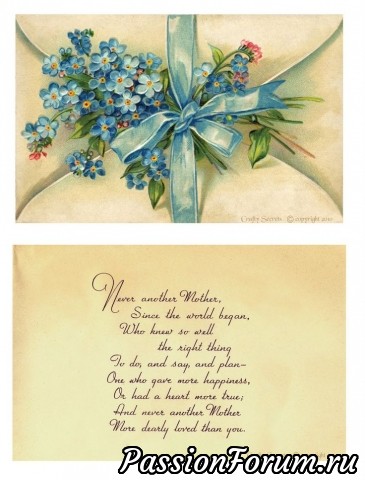 Crafty Secrets © copyright 2010
Never another Mother,
Since the world began,
Who knew so well
the right thing
To do, and say, and plan–
One who gave more happiness,
Or had a heart more true;
And never another Mother
More dearly loved than you.
PassionForum.ru